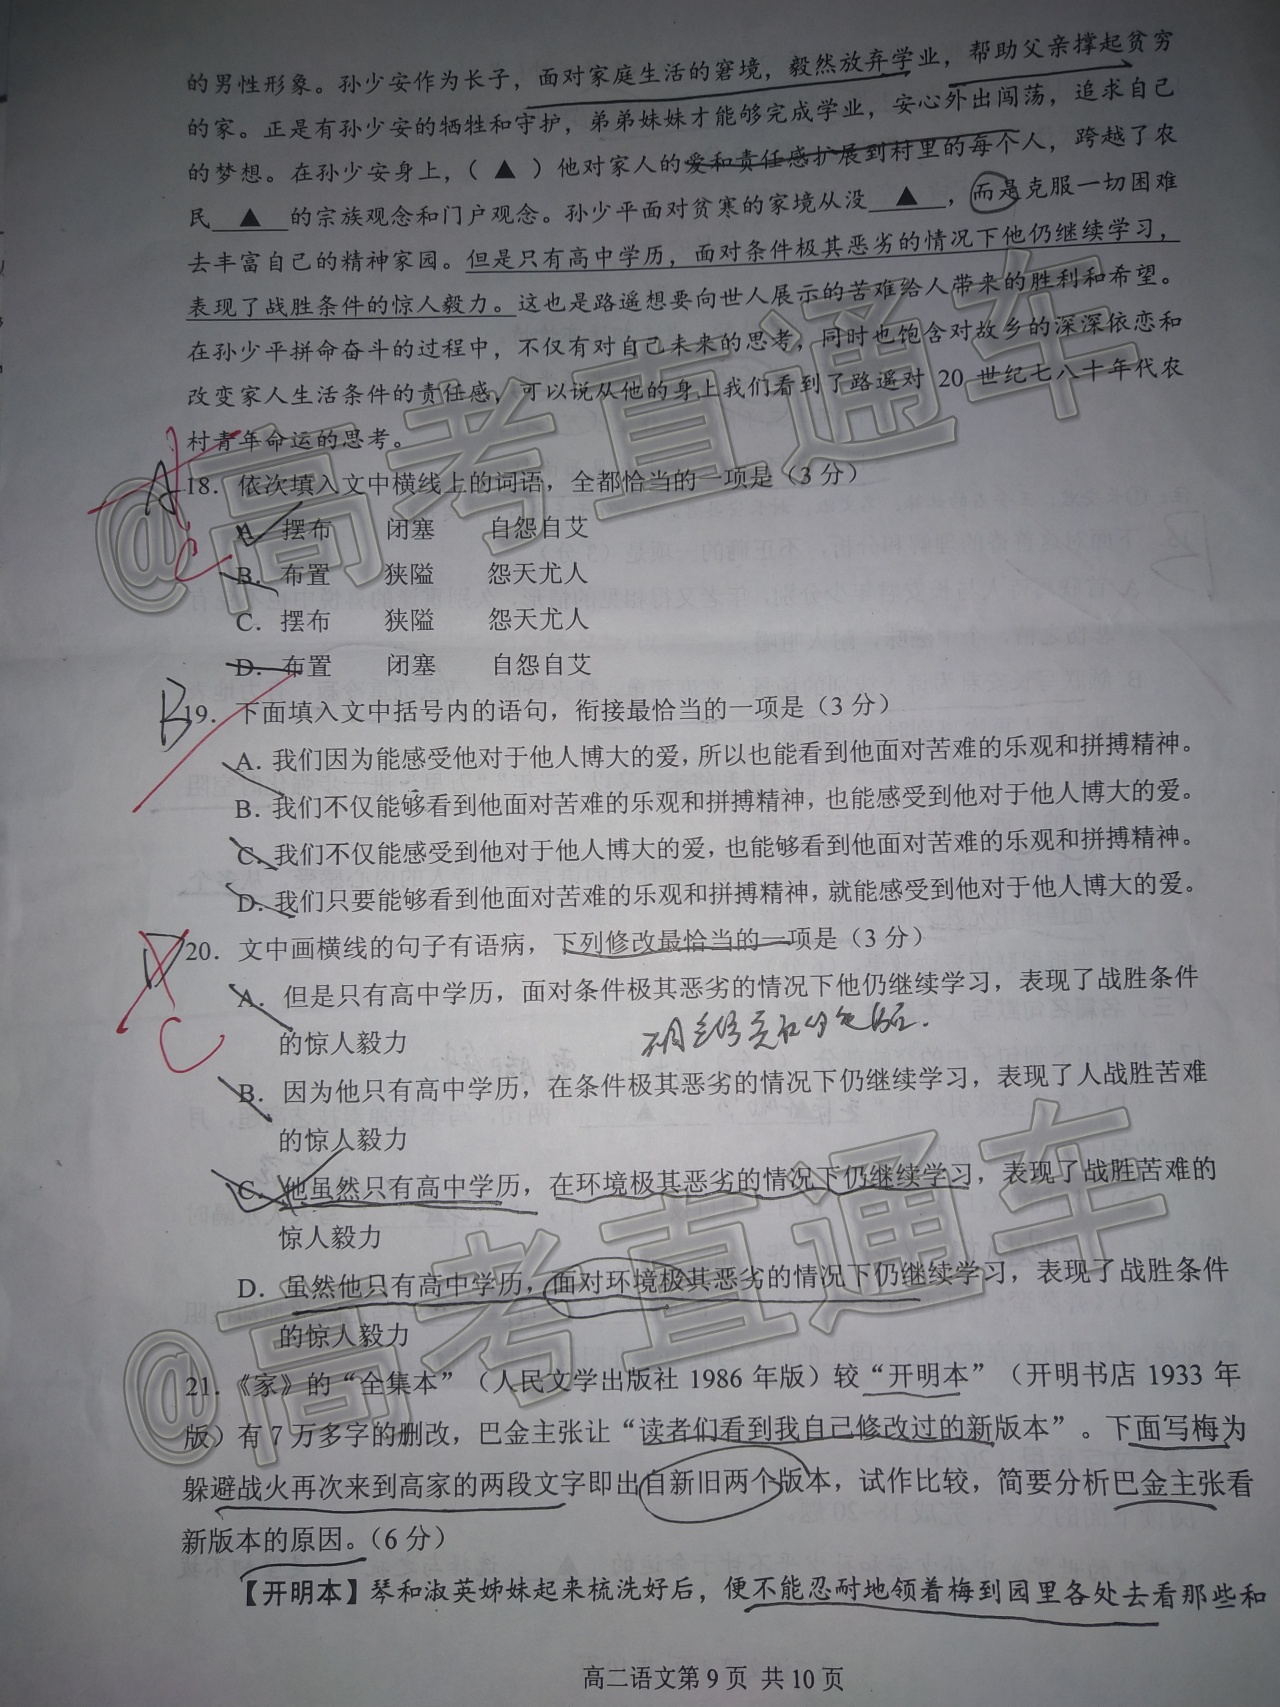 的男性形象。孙少安作为长子，面对家庭生活的窘境，毅然放弃学业，帮助父亲撑起贫穷
的家。正是有孙少安的牺牲和守护，弟弟妹妹才能够完成学业，安心外出闯荡，追求自己
的梦想。在孙少安身上，（ ▲ ）他对家人的爱和责任感扩展到村里的每个人，跨越了农
民 ▲ 的宗族观念和门户观念。孙少平面对贫寒的家境从没 ▲ ，而是克服一切困难
去丰富自己的精神家园。但是只有高中学历，面对条件极其恶劣的情况下他仍继续学习，
表现了战胜条件的惊人毅力。这也是路遥想要向世人展示的苦难给人带来的胜利和希望。
在孙少平拼命奋斗的过程中，不仅有对自己未来的思考，同时也饱含对故乡的深深依恋和
改变家人生活条件的责任感，可以说从他的身上我们看到了路遥对 20 世纪七八十年代农
村青年命运的思考。
A
18．依次填入文中横线上的词语，全都恰当的一项是（3 分）
A. 摆布 闭塞 自怨自艾
C
B. 布置 狭隘 怨天尤人
C. 摆布 狭隘 怨天尤人
D. 布置 闭塞 自怨自艾
B
19．下面填入文中括号内的语句，衔接最恰当的一项是（3 分）
A. 我们因为能感受他对于他人博大的爱，所以也能看到他面对苦难的乐观和拼搏精神。
B. 我们不仅能够看到他面对苦难的乐观和拼搏精神，也能感受到他对于他人博大的爱。
C. 我们不仅能感受到他对于他人博大的爱，也能够看到他面对苦难的乐观和拼搏精神。
D. 我们只要能够看到他面对苦难的乐观和拼搏精神，就能感受到他对于他人博大的爱。
D
20．文中画横线的句子有语病，下列修改最恰当的一项是（3 分）
A. 但是只有高中学历，面对条件极其恶劣的情况下他仍继续学习，表现了战胜条件
的惊人毅力
C
B. 因为他只有高中学历，在条件极其恶劣的情况下仍继续学习，表现了人战胜苦难
的惊人毅力
C. 他虽然只有高中学历，在环境极其恶劣的情况下仍继续学习，表现了战胜苦难的
惊人毅力
D. 虽然他只有高中学历，面对环境极其恶劣的情况下仍继续学习，表现了战胜条件
的惊人毅力
21．《家》的“全集本”（人民文学出版社 1986 年版）较“开明本”（开明书店 1933 年
版）有 7 万多字的删改，巴金主张让“读者们看到我自己修改过的新版本”。下面写梅为
躲避战火再次来到高家的两段文字即出自新旧两个版本，试作比较，简要分析巴金主张看
新版本的原因。（6 分）
【开明本】琴和淑英姊妹起来梳洗好后，便不能忍耐地领着梅到园里各处去看那些和
高二语文第 9 页 共 10 页
@高考直通车
@高考直通车